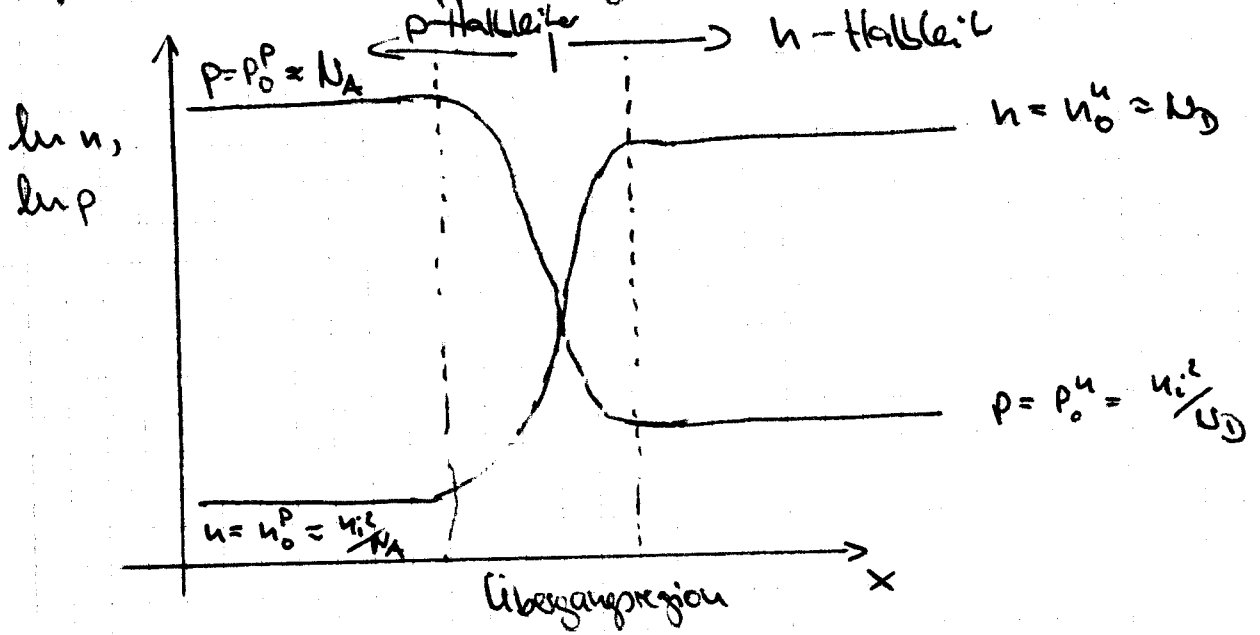 p-Halbleiter
n-Halbleit
p=p₀ᵖ ≈ N_A
ln n,
ln p
n = n₀ⁿ ≈ N_D
p = p₀ⁿ = nᵢ²/N_D
n = n₀ᵖ ≈ nᵢ²/N_A
x
Übergangsregion